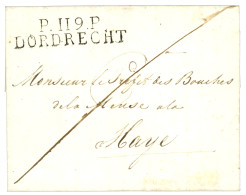 P.119.P
DORDRECHT
Monsieur le Préfet des Bouches
de la Meuse a la
Haye